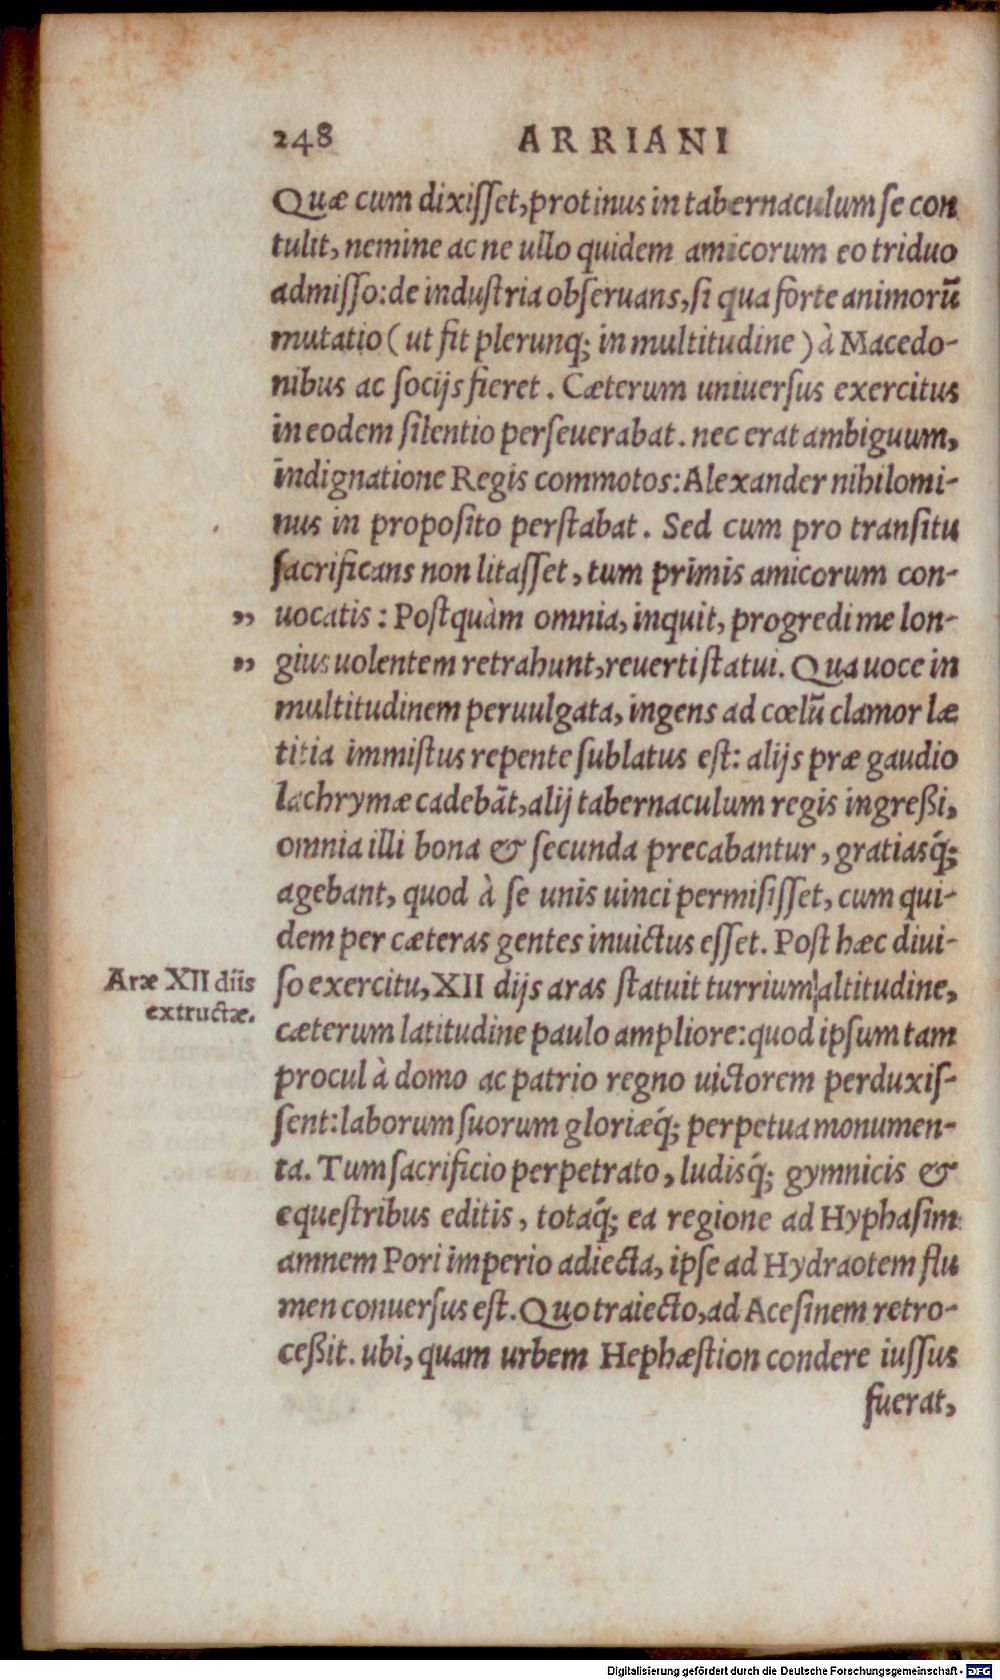 248 ARRIANI
Quæ cum dixisset, protinus in tabernaculum se con
tulit, nemine ac ne ullo quidem amicorum eo triduo
admisso: de industria obseruans, si qua forte animorū
mutatio (ut fit plerunq; in multitudine) à Macedo-
nibus ac socijs fieret. Cæterum uniuersus exercitus
in eodem silentio perseuerabat. nec erat ambiguum,
indignatione Regis commotos: Alexander nihilomi-
nus in proposito perstabat. Sed cum pro transitu
sacrificans non litasset, tum primis amicorum con-
„ uocatis: Postquàm omnia, inquit, progredi me lon-
„ gius uolentem retrahunt, reuerti statui. Qua uoce in
multitudinem peruulgata, ingens ad cœlū clamor læ
titia immistus repente sublatus est: alijs præ gaudio
lachrymæ cadebāt, alij tabernaculum regis ingreßi,
omnia illi bona & secunda precabantur, gratiasq́;
agebant, quod à se unis uinci permisisset, cum qui-
dem per cæteras gentes inuictus esset. Post hæc diui-
Aræ XII diis
extructæ.
so exercitu, XII dijs aras statuit turrium altitudine,
cæterum latitudine paulo ampliore: quod ipsum tam
procul à domo ac patrio regno uictorem perduxis-
sent: laborum suorum gloriæq́; perpetua monumen-
ta. Tum sacrificio perpetrato, ludisq́; gymnicis &
equestribus editis, totaq́; ea regione ad Hyphasim
amnem Pori imperio adiecta, ipse ad Hydraotem flu
men conuersus est. Quo traiecto, ad Acesinem retro-
ceßit. ubi, quam urbem Hephæstion condere iussus
fuerat,
Digitalisierung gefördert durch die Deutsche Forschungsgemeinschaft - DFG